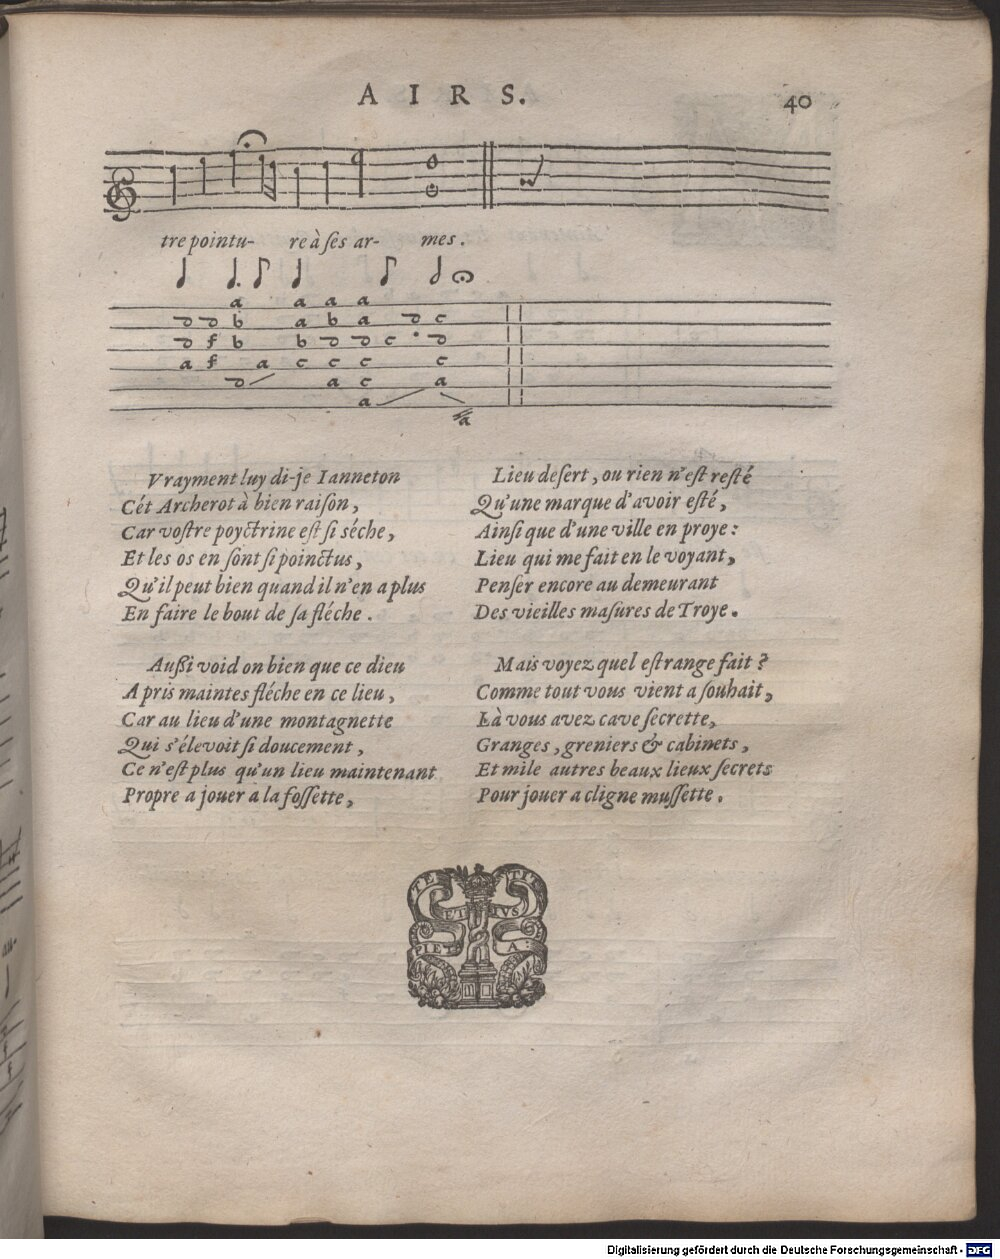 AIRS.
40
tre pointu- re à ſes ar- mes.
a a a a
d d b a b a d c
d f b b d d c d
a f a c c c c
d a c a
a
a
Vrayment luy di-je Ianneton
Cét Archerot à bien raiſon,
Car voſtre poyctrine eſt ſi séche,
Et les os en ſont ſi poinctus,
Qu'il peut bien quand il n'en a plus
En faire le bout de ſa fléche.
Auſſi void on bien que ce dieu
A pris maintes fléche en ce lieu,
Car au lieu d'une montagnette
Qui s'élevoit ſi doucement,
Ce n'eſt plus qu'un lieu maintenant
Propre a jouer à la foſſette,
Lieu deſert, ou rien n'eſt reſté
Qu'une marque d'avoir eſté,
Ainſi que d'une ville en proye:
Lieu qui me fait en le voyant,
Penſer encore au demeurant
Des vieilles maſures de Troye.
Mais voyez quel eſtrange fait?
Comme tout vous vient a ſouhait,
Là vous avez cave ſecrette,
Granges, greniers & cabinets,
Et mile autres beaux lieux ſecrets
Pour jouer a cligne muſſette.
PIETA
ET IVS
TITI
Digitalisierung gefördert durch die Deutsche Forschungsgemeinschaft - DFG